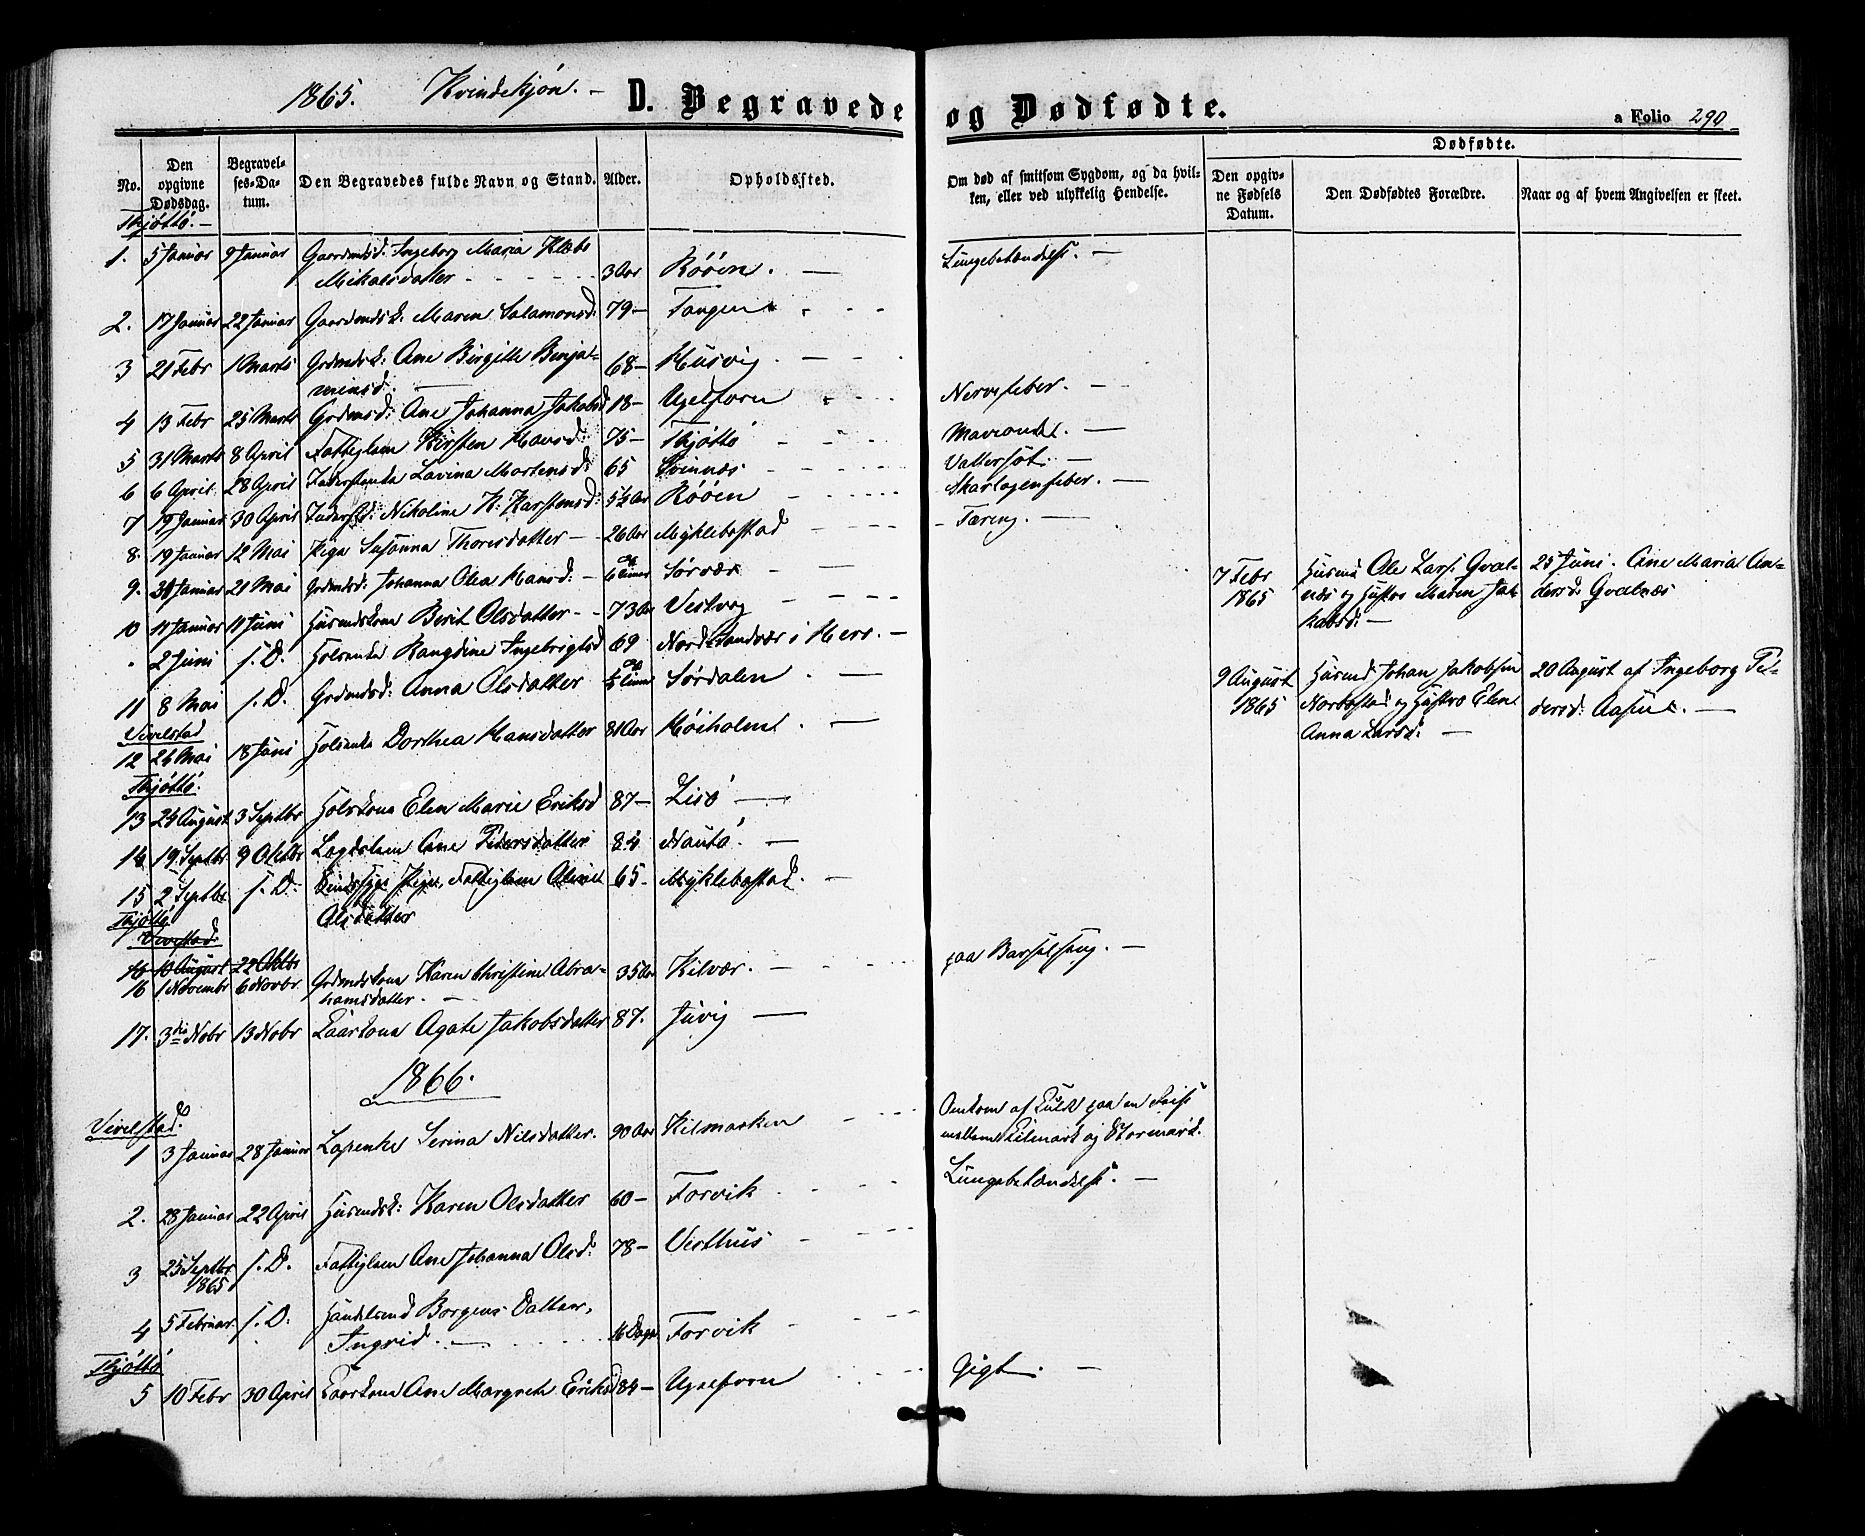 1865. Kvindekjön. –
D. Begravede og Dødfødte.
a Folio 290
No.
Den opgivne Dødsdag.
Begravelses-Datum.
Den Begravedes fulde Navn og Stand.
Alder.
Opholdssted.
Om død af smitsom Sygdom, og da hvilken, eller ved ulykkelig Hendelse.
Dødfødte.
Den opgivne Fødsels Datum.
Den Dødfødtes Forældre.
Naar og af hvem Angivelsen er skeet.
Thjöttö. –
1. 5 Januar 9 Januar Gaardmdsd: Ingeborg Maria Klæbo Mikalsdatter 3 Aar Rööen. – Lungebetændelse. –
2. 17 Januar 22 Januar Gaardmdsk: Maren Salamonsd: 79 – Tangen
3 21 Febr 1 Marts Grdmdsk: Ane Birgitte Benjaminsd: 68 – Husvig
4 13 Febr 25 Marts Grdmsd: Ane Johanna Jakobsd 18 – Ugelforn Nervefeber. –
5 31 Marts 8 April Fattiglem Kirsten Hansd: 75 – Thjöttö –
6 6 April 28 April Inderstenke Lavina Mortensd: 65 Svinnæs Vattersot: –
7 19 Januar 30 April Inderstd: Nikoline K: Karstensd: 5½ Aar Rööen Skarlagensfeber. –
8. 19 Januar 12 Mai Pige Susanna Thoresdatter – 26 Aar Myklebostad – Tæring. –
9. 31 Januar 21 Mai Grdmdsd: Johanna Olea Hansd: – 6 Timer Sörvær –
7 Febr 1865 Husmd Ole Lars. Qvalnæs og Hustro Maren Jakobsd: – 25 Juni. Ane Maria Andersd: Qvalnæs
10 11 Januar 11 Juni Husmdskone Berit Olsdatter – 73 Aar Vestvog
" 2 Juni s. D. Ingebrigtsd 69 Nordre Sandvær i Herö. –
11 8 Mai s. D. Grdmdsd: Anna Olsdatter Sördalen. –
9 August 1865 Husmd Johan Jakobsen Norbostad og Hustro Elen Anna Larsd: – 20 August af Ingeborg Pedersd: –
Vivelstad
12 26 Mai 18 Juni Dorthea Hansdatter 81 Aar Höiholmt. –
Thjöttö.
13 25 August 3 Septbr Elen Marie Eriksd 87 – Lisö –
14 19 Septbr 9 Oktbr Lægdslem Ane Pedersdatter 84 Nautö. –
15 2 Septbr s. D. Pige, Fattiglem Olsdatter 65 – Myklebostad. –
Thjöttö
Vevelstad
16 10 August 22 Oktbr
16 1 Novembr 6 Novbr Grdmdskone Karen Christine Abrahamsdatter. – 35 Aar Kilvær. – paa Barselseng. –
17. 3die Nobr 13 Nobr Agate Jakobsdatter 87. Juvig –
1866.
Vivelstad.
1 3 Januar 28 Januar Serina Nilsdatter. 90 Aar Kilmarken Omkom af Kulde paa en Reise mellem Kilmark og Stormark.
2. 28 Januar 22 April Husmdsk: Karen Olsdatter 60 – Forvik Lungebetændelse. –
3 25 Septbr 1865 s. D. Fattiglem Ane Johanna Olsd: 78 – Vesthus
4 5 Februar s. D. Handelsmd Borgens Datter, Ingrid. 16 Dage Forvik
Thjöttö
5 10 Febr 30 April Ane Margrete Eriksd 84 – Ugelforn Gigt. –